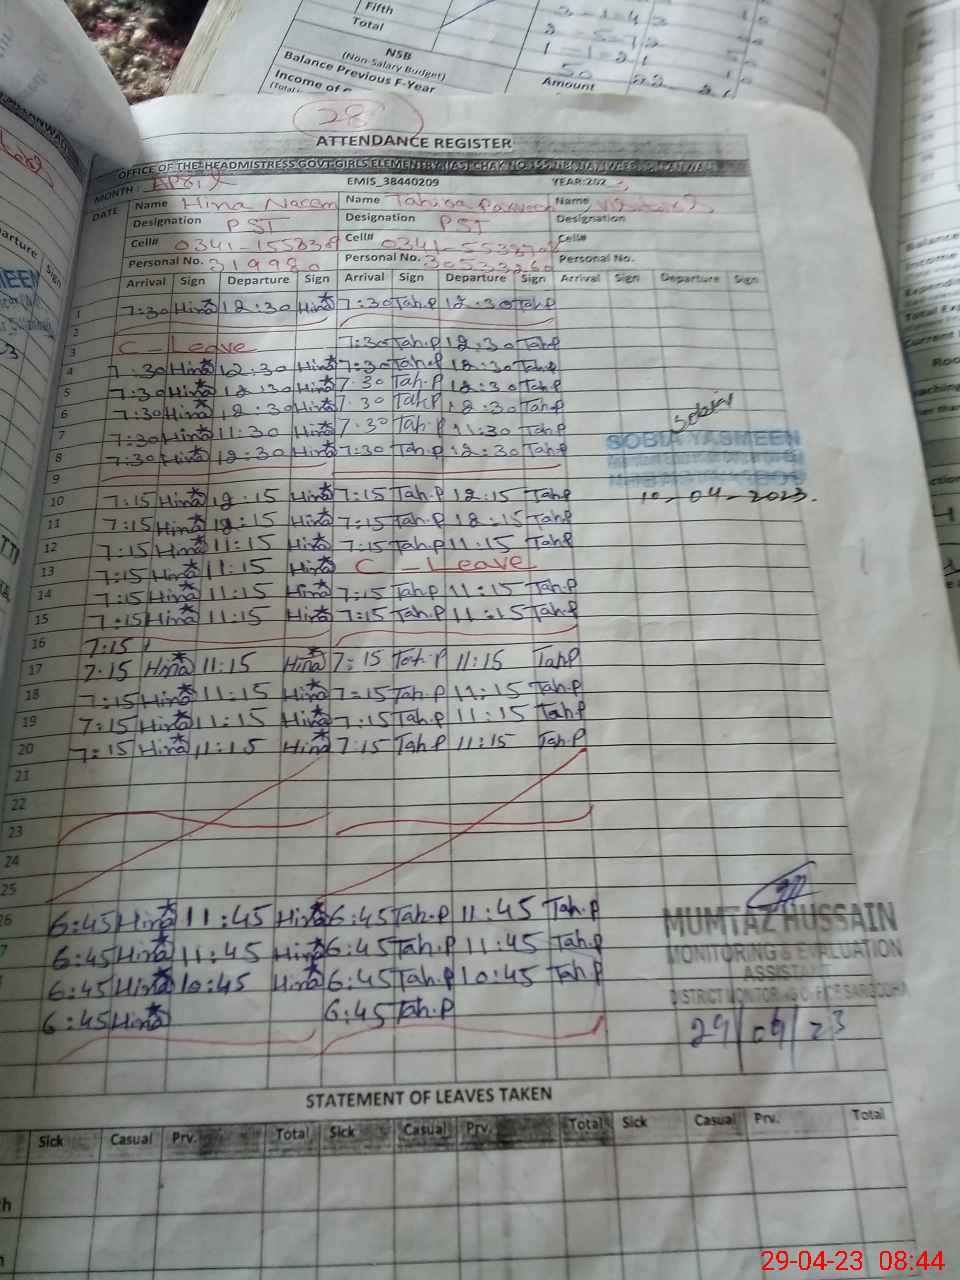 Fifth
Total
3-1-43
1-1-21
50 22 21
NSB
(Non-Salary Budget)
Balance Previous F-Year
Amount
28
ATTENDANCE REGISTER
OFFICE OF THE HEADMISTRESS GOVT GIRLS ELEMENTRY
MONTH: April EMIS_38440209 YEAR:202
DATE Name Hina Naeem Name Tahira Parveen Name
Designation PST Designation PST Designation
Cell# 0341-155838 Cell# 0341-553870 Cell#
Personal No. 319980 Personal No. 30533260 Personal No.
Arrival Sign Departure Sign Arrival Sign Departure Sign Arrival Sign Departure Sign
1 7:30 Hina 12:30 Hina 7:30 Tah.P 12:30 Tah.P
2
3 C-Leave 7:30 Tah.P 12:30 Tah.P
4 7:30 Hina 12:30 Hina 7:30 Tah.P 12:30 Tah.P
5 7:30 Hina 12:30 Hina 7:30 Tah.P 12:30 Tah.P
6 7:30 Hina 12:30 Hina 7:30 Tah.P 12:30 Tah.P
7 7:30 Hina 11:30 Hina 7:30 Tah.P 11:30 Tah.P
8 7:30 Hina 12:30 Hina 7:30 Tah.P 12:30 Tah.P
Sobia
SOBIA YASMEEN
9
10 7:15 Hina 12:15 Hina 7:15 Tah.P 12:15 Tah.P 10-04-2023.
11 7:15 Hina 12:15 Hina 7:15 Tah.P 12:15 Tah.P
12 7:15 Hina 11:15 Hina 7:15 Tah.P 11:15 Tah.P
13 7:15 Hina 11:15 Hina C-Leave
14 7:15 Hina 11:15 Hina 7:15 Tah.P 11:15 Tah.P
15 7:15 Hina 11:15 Hina 7:15 Tah.P 11:15 Tah.P
16 7:15
17 7:15 Hina 11:15 Hina 7:15 Tah.P 11:15 Tah.P
18 7:15 Hina 11:15 Hina 7:15 Tah.P 11:15 Tah.P
19 7:15 Hina 11:15 Hina 7:15 Tah.P 11:15 Tah.P
20 7:15 Hina 11:15 Hina 7:15 Tah.P 11:15 Tah.P
21
22
23
24
25
6 6:45 Hina 11:45 Hina 6:45 Tah.P 11:45 Tah.P
7 6:45 Hina 11:45 Hina 6:45 Tah.P 11:45 Tah.P
6:45 Hina 10:45 Hina 6:45 Tah.P 10:45 Tah.P
6:45 Hina 6:45 Tah.P
MUMTAZ HUSSAIN
MONITORING & EVALUATION
ASSISTANT
DISTRICT MONITORING OFFICE SARGODHA
29/04/23
STATEMENT OF LEAVES TAKEN
Sick Casual Prv. Total Sick Casual Prv. Total Sick Casual Prv. Total
29-04-23 08:44